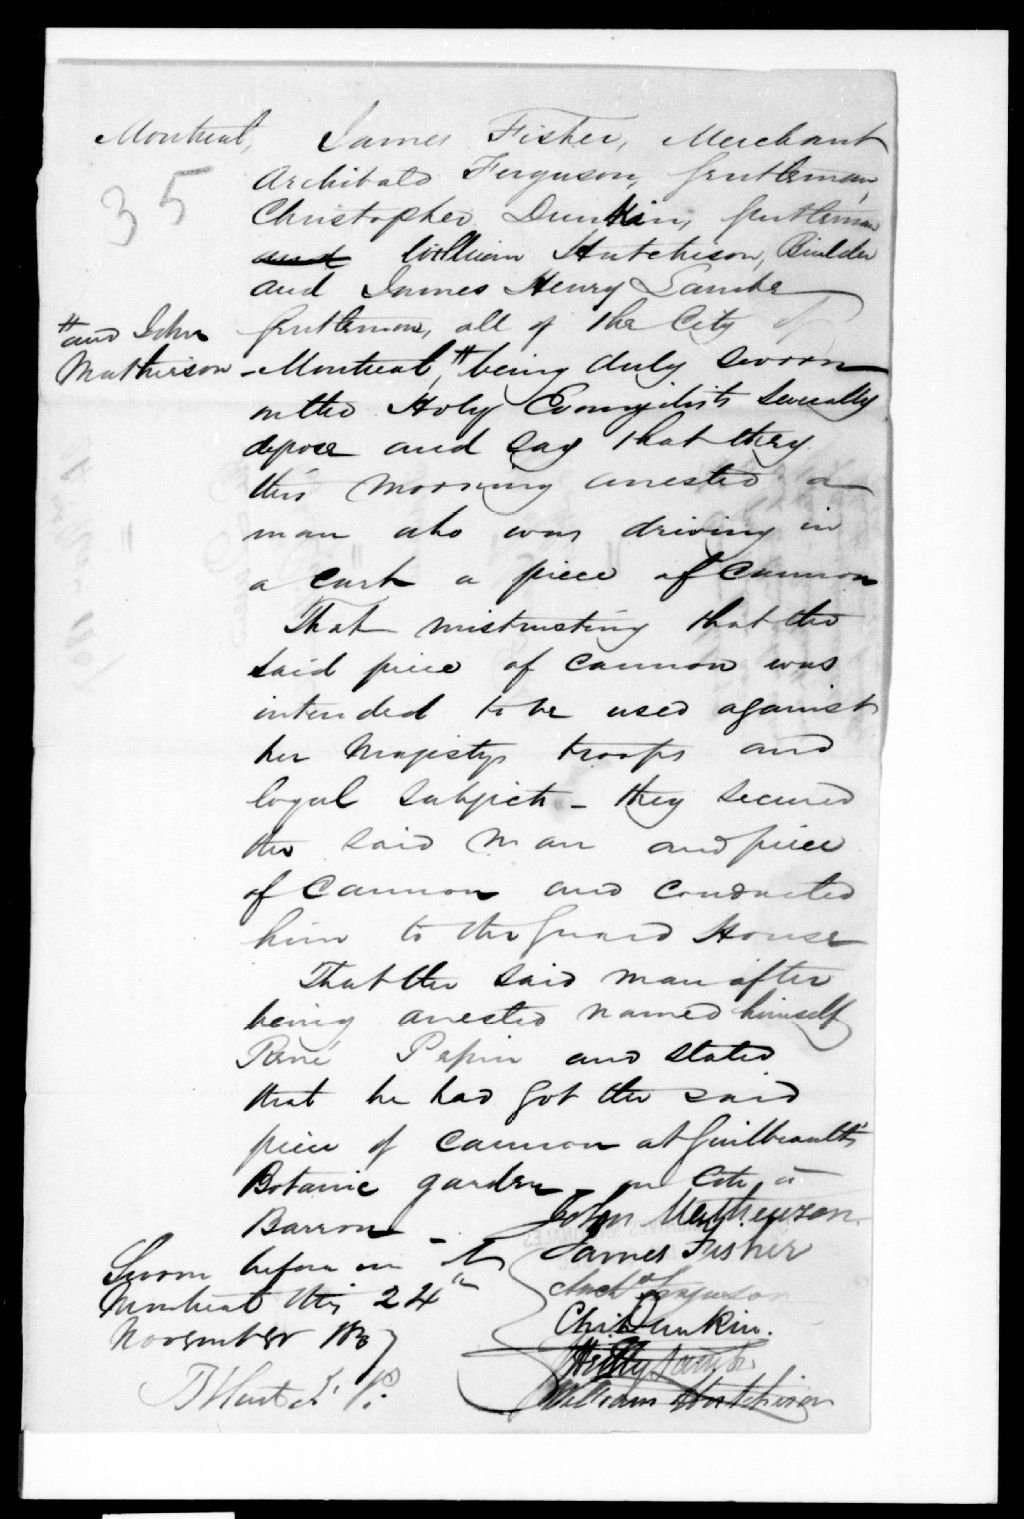 Montreal, James Fisher, Merchant
35
Archibald Ferguson, Gentleman,
Christopher Dunkin, Gentleman
and William Hutchison, Builder
and James Henry Lambe
Gentleman, all of the City of
# and John
Matheuson
Montreal, # being duly sworn
on the Holy Evangelists severally
depose and say that they
this morning arrested a
man who was driving in
a cart a piece of Cannon
That mistrusting that the
said piece of Cannon was
intended to be used against
her Majestys troops and
loyal subjects - they secured
the said man and piece
of Cannon and conducted
him to the Guard House
That the said man after
being arrested named himself
René Papin and stated
that he had got the said
piece of Cannon at Guilbeault's
Botanic garden on Côte à
Barron -
John Matheuson
James Fisher
Archd Ferguson
Chr. Dunkin.
Henry Lambe
William Hutchison
Sworn before me At
Montreal this 24th
November 1837
J. P.